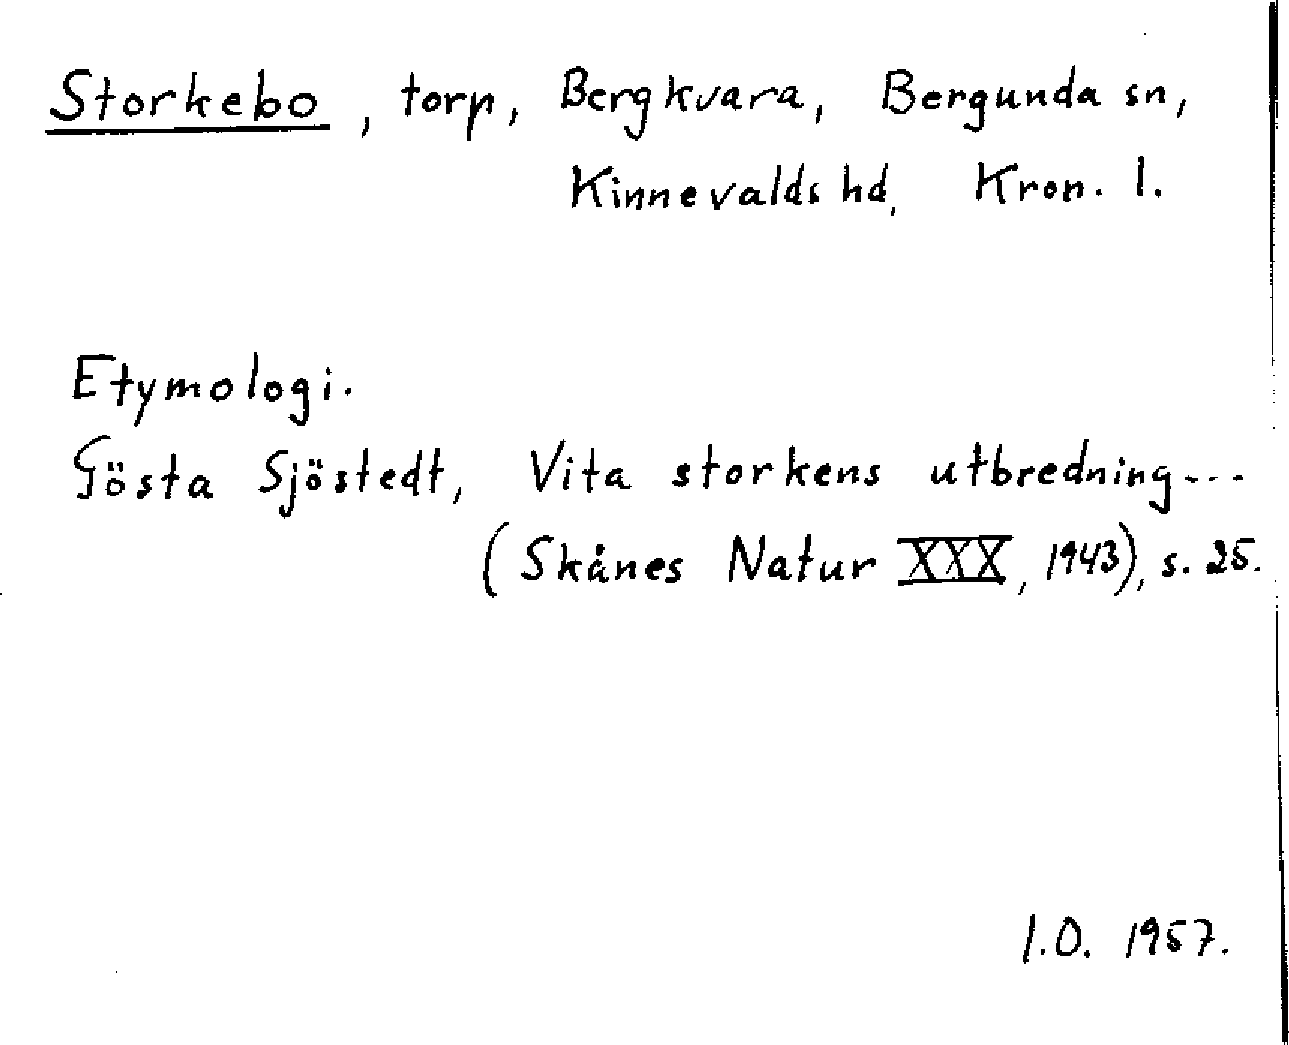 Storkebo, torp, Bergkvara, Bergunda sn,
Kinnevalds hd, Kron. l.
Etymologi.
Gösta Sjöstedt, Vita storkens utbredning...
(Skånes Natur XXX, 1943), s. 25.
I.O. 1957.